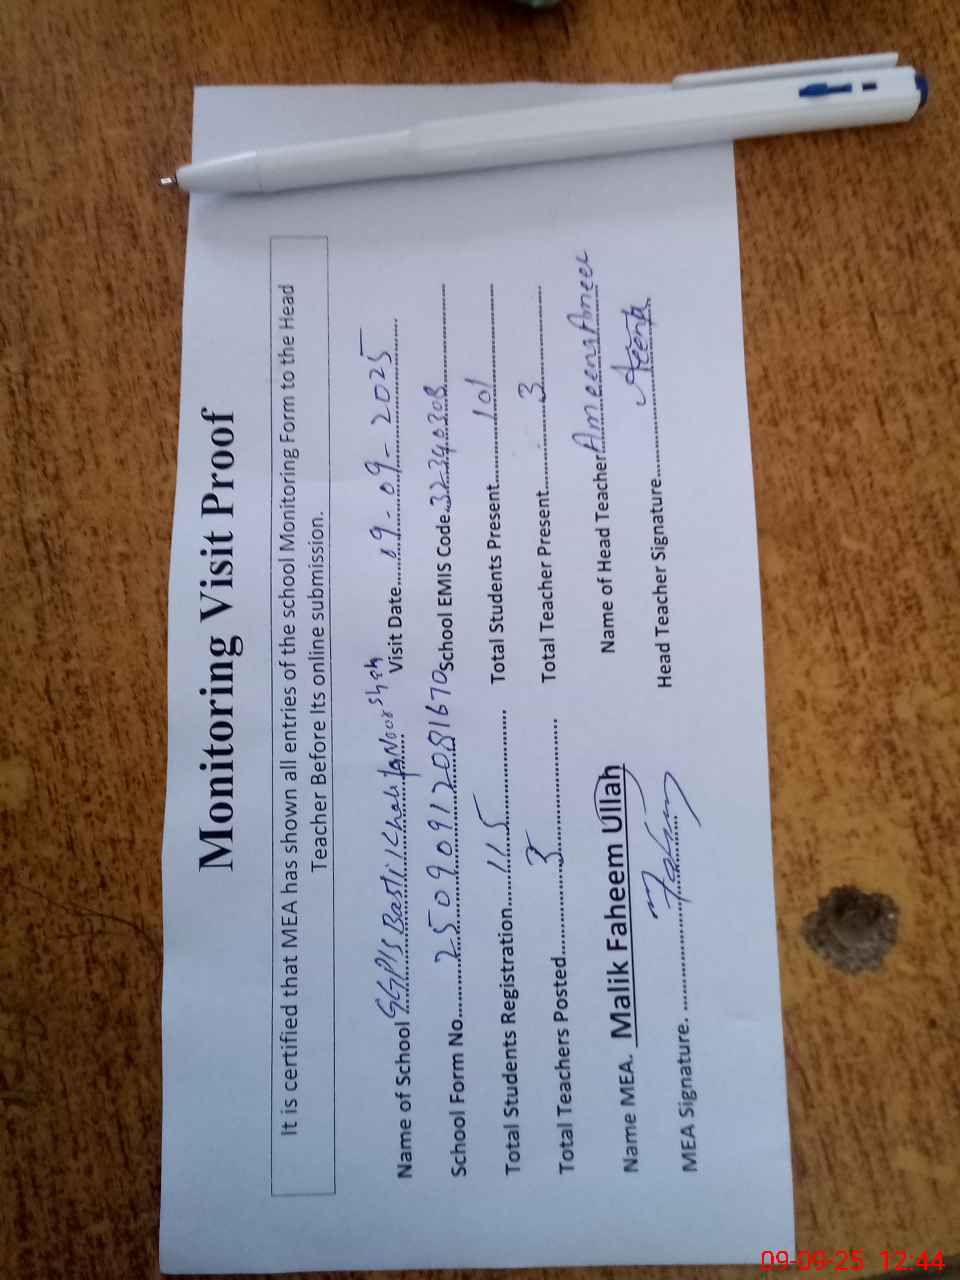 Monitoring Visit Proof
It is certified that MEA has shown all entries of the school Monitoring Form to the Head
Teacher Before Its online submission.
Name of School GGPS Basti Khalifa Noor Shah Visit Date 09-09-2025
School Form No. 25090912081670 School EMIS Code. 32340308
Total Students Registration 115 Total Students Present 101
Total Teachers Posted 3 Total Teacher Present 3
Name MEA. Malik Faheem Ullah Name of Head Teacher Ameena Ameer
MEA Signature. Fahim Head Teacher Signature
09-09-25 12:44